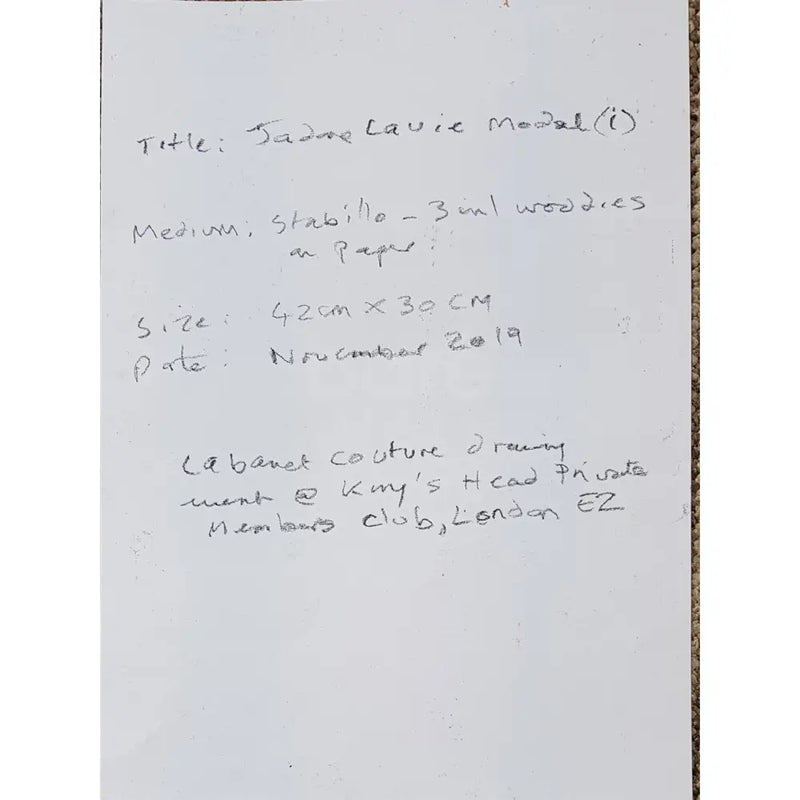 Title: Jadore Lavie Model (i)
Medium: Stabillo - 3 in 1 woodies
on Paper.
Size: 42cm x 30 CM
Date: November 2019
Cabaret Couture drawing
event @ King's Head Private
Members Club, London E2